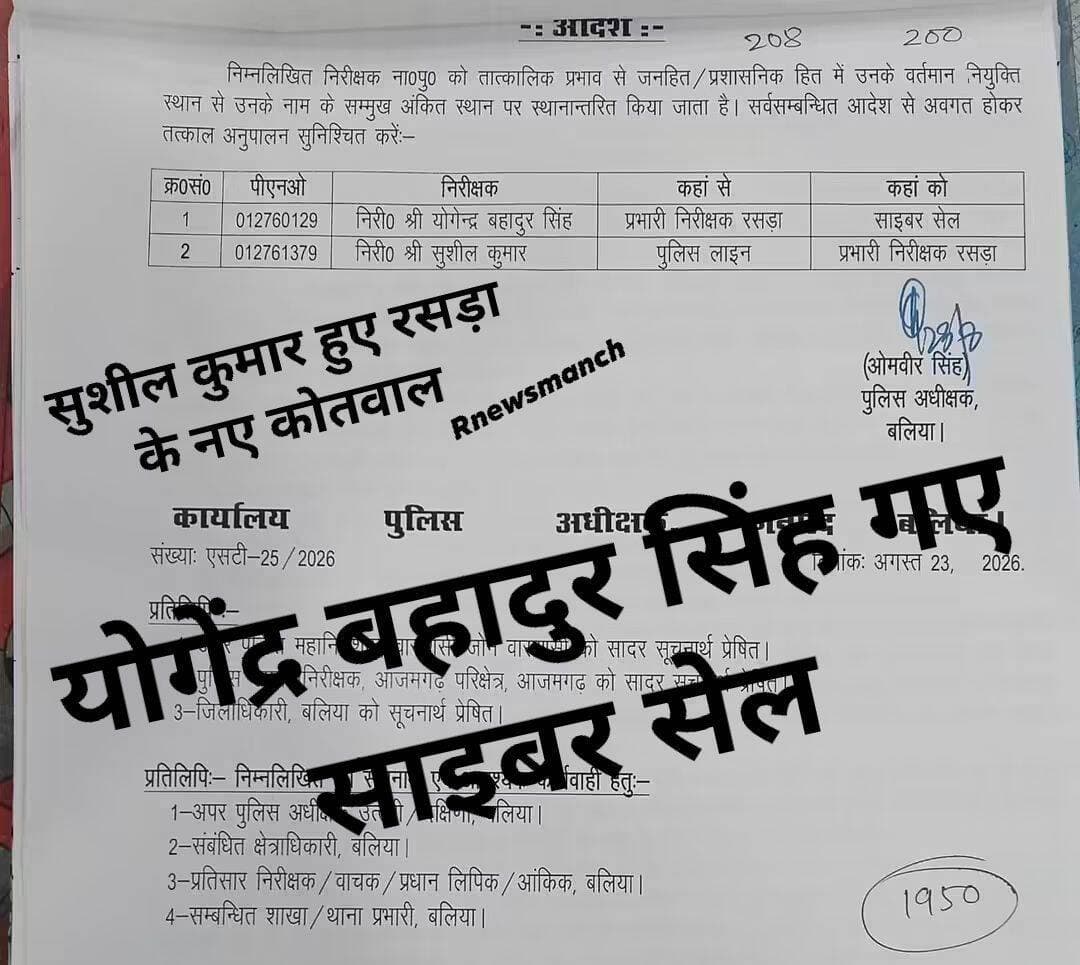 -: आदेश :-
208 200
निम्नलिखित निरीक्षक ना0पु0 को तात्कालिक प्रभाव से जनहित/प्रशासनिक हित में उनके वर्तमान नियुक्ति
स्थान से उनके नाम के सम्मुख अंकित स्थान पर स्थानान्तरित किया जाता है। सर्वसम्बन्धित आदेश से अवगत होकर
तत्काल अनुपालन सुनिश्चित करें:-
क्र0सं0 पीएनओ निरीक्षक कहां से कहां को
1 012760129 निरी0 श्री योगेन्द्र बहादुर सिंह प्रभारी निरीक्षक रसड़ा साइबर सेल
2 012761379 निरी0 श्री सुशील कुमार पुलिस लाइन प्रभारी निरीक्षक रसड़ा
सुशील कुमार हुए रसड़ा
के नए कोतवाल
Rnewsmanch
(ओमवीर सिंह)
पुलिस अधीक्षक,
बलिया।
कार्यालय पुलिस अधीक्षक, बलिया।
संख्याः एसटी-25/2026 अगस्त 23, 2026.
योगेंद्र बहादुर सिंह गए
साइबर सेल
को सादर सूचनार्थ प्रेषित।
निरीक्षक, आजमगढ़ परिक्षेत्र, आजमगढ़ को सादर
3-जिलाधिकारी, बलिया को सूचनार्थ प्रेषित।
प्रतिलिपिः- निम्नलिखित हेतुः-
1-अपर पुलिस बलिया।
2-संबंधित क्षेत्राधिकारी, बलिया।
3-प्रतिसार निरीक्षक/वाचक/प्रधान लिपिक/आंकिक, बलिया।
4-सम्बन्धित शाखा/थाना प्रभारी, बलिया।
1950